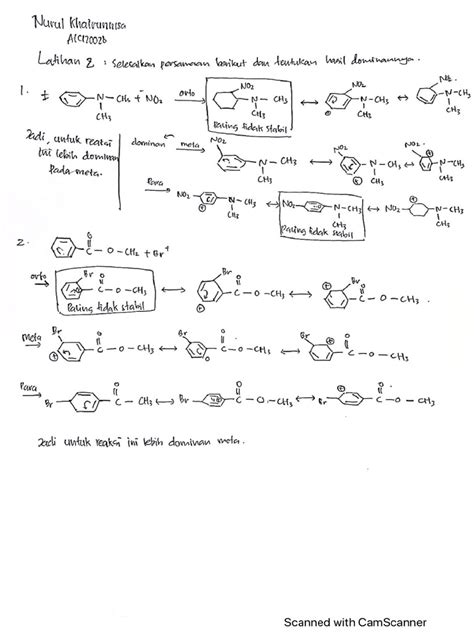 Nurul Khairunnisa
A1C117002b
Latihan 2 : Selesaikan persamaan berikut dan tentukan hasil dominannya.
1. N – CH3 + NO2 orto NO2 N – CH3 CH3 ↔ NO2 N – CH3 CH3 ↔ NO2 N – CH3 CH3
CH3
Paling tidak stabil
Jadi, untuk reaksi
ini lebih dominan
pada meta.
dominan meta NO2 N – CH3 CH3 ↔ NO2 N – CH3 CH3 ↔ NO2 N – CH3 CH3
Para NO2 N – CH3 CH3 ↔ NO2 N – CH3 CH3 ↔ NO2 N – CH3 CH3
Paling tidak stabil
2. O C – O – CH3 + Br+
orto Br O C – O – CH3 ↔ Br O C – O – CH3 ↔ Br O C – O – CH3
Paling tidak stabil
Meta Br O C – O – CH3 ↔ Br O C – O – CH3 ↔ Br O C – O – CH3
Para Br O C – CH3 ↔ Br O C O – CH3 ↔ Br O C – O – CH3
Jadi untuk reaksi ini lebih dominan meta.
Scanned with CamScanner